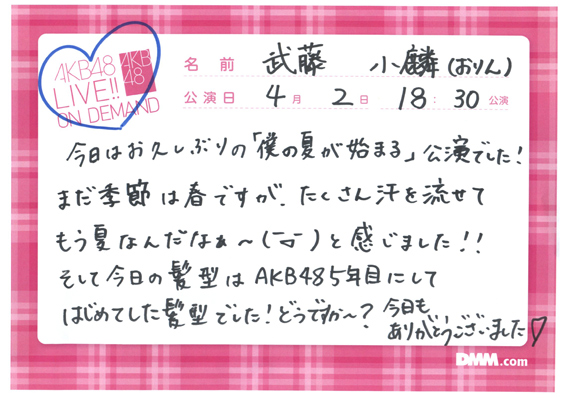 AKB48
LIVE!!
ON DEMAND
AKB
48
名前 武藤 小麟(おりん)
公演日 4月 2日 18:30公演
今日はお久しぶりの「僕の夏が始まる」公演でした!
まだ季節は春ですが、たくさん汗を流せて
もう夏なんだなぁ〜(ˉ▽ˉ)と感じました!!
そして今日の髪型はAKB48 5年目にして
はじめてした髪型でした!どうですか〜?
今日も
ありがとうございました♡
DMM.com